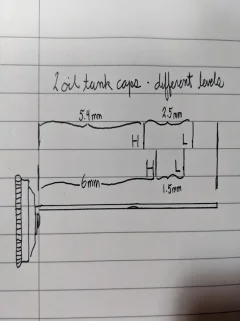 2 oil tank caps - different levels
5.4mm 2.5mm
H L
H L
6mm 1.5mm